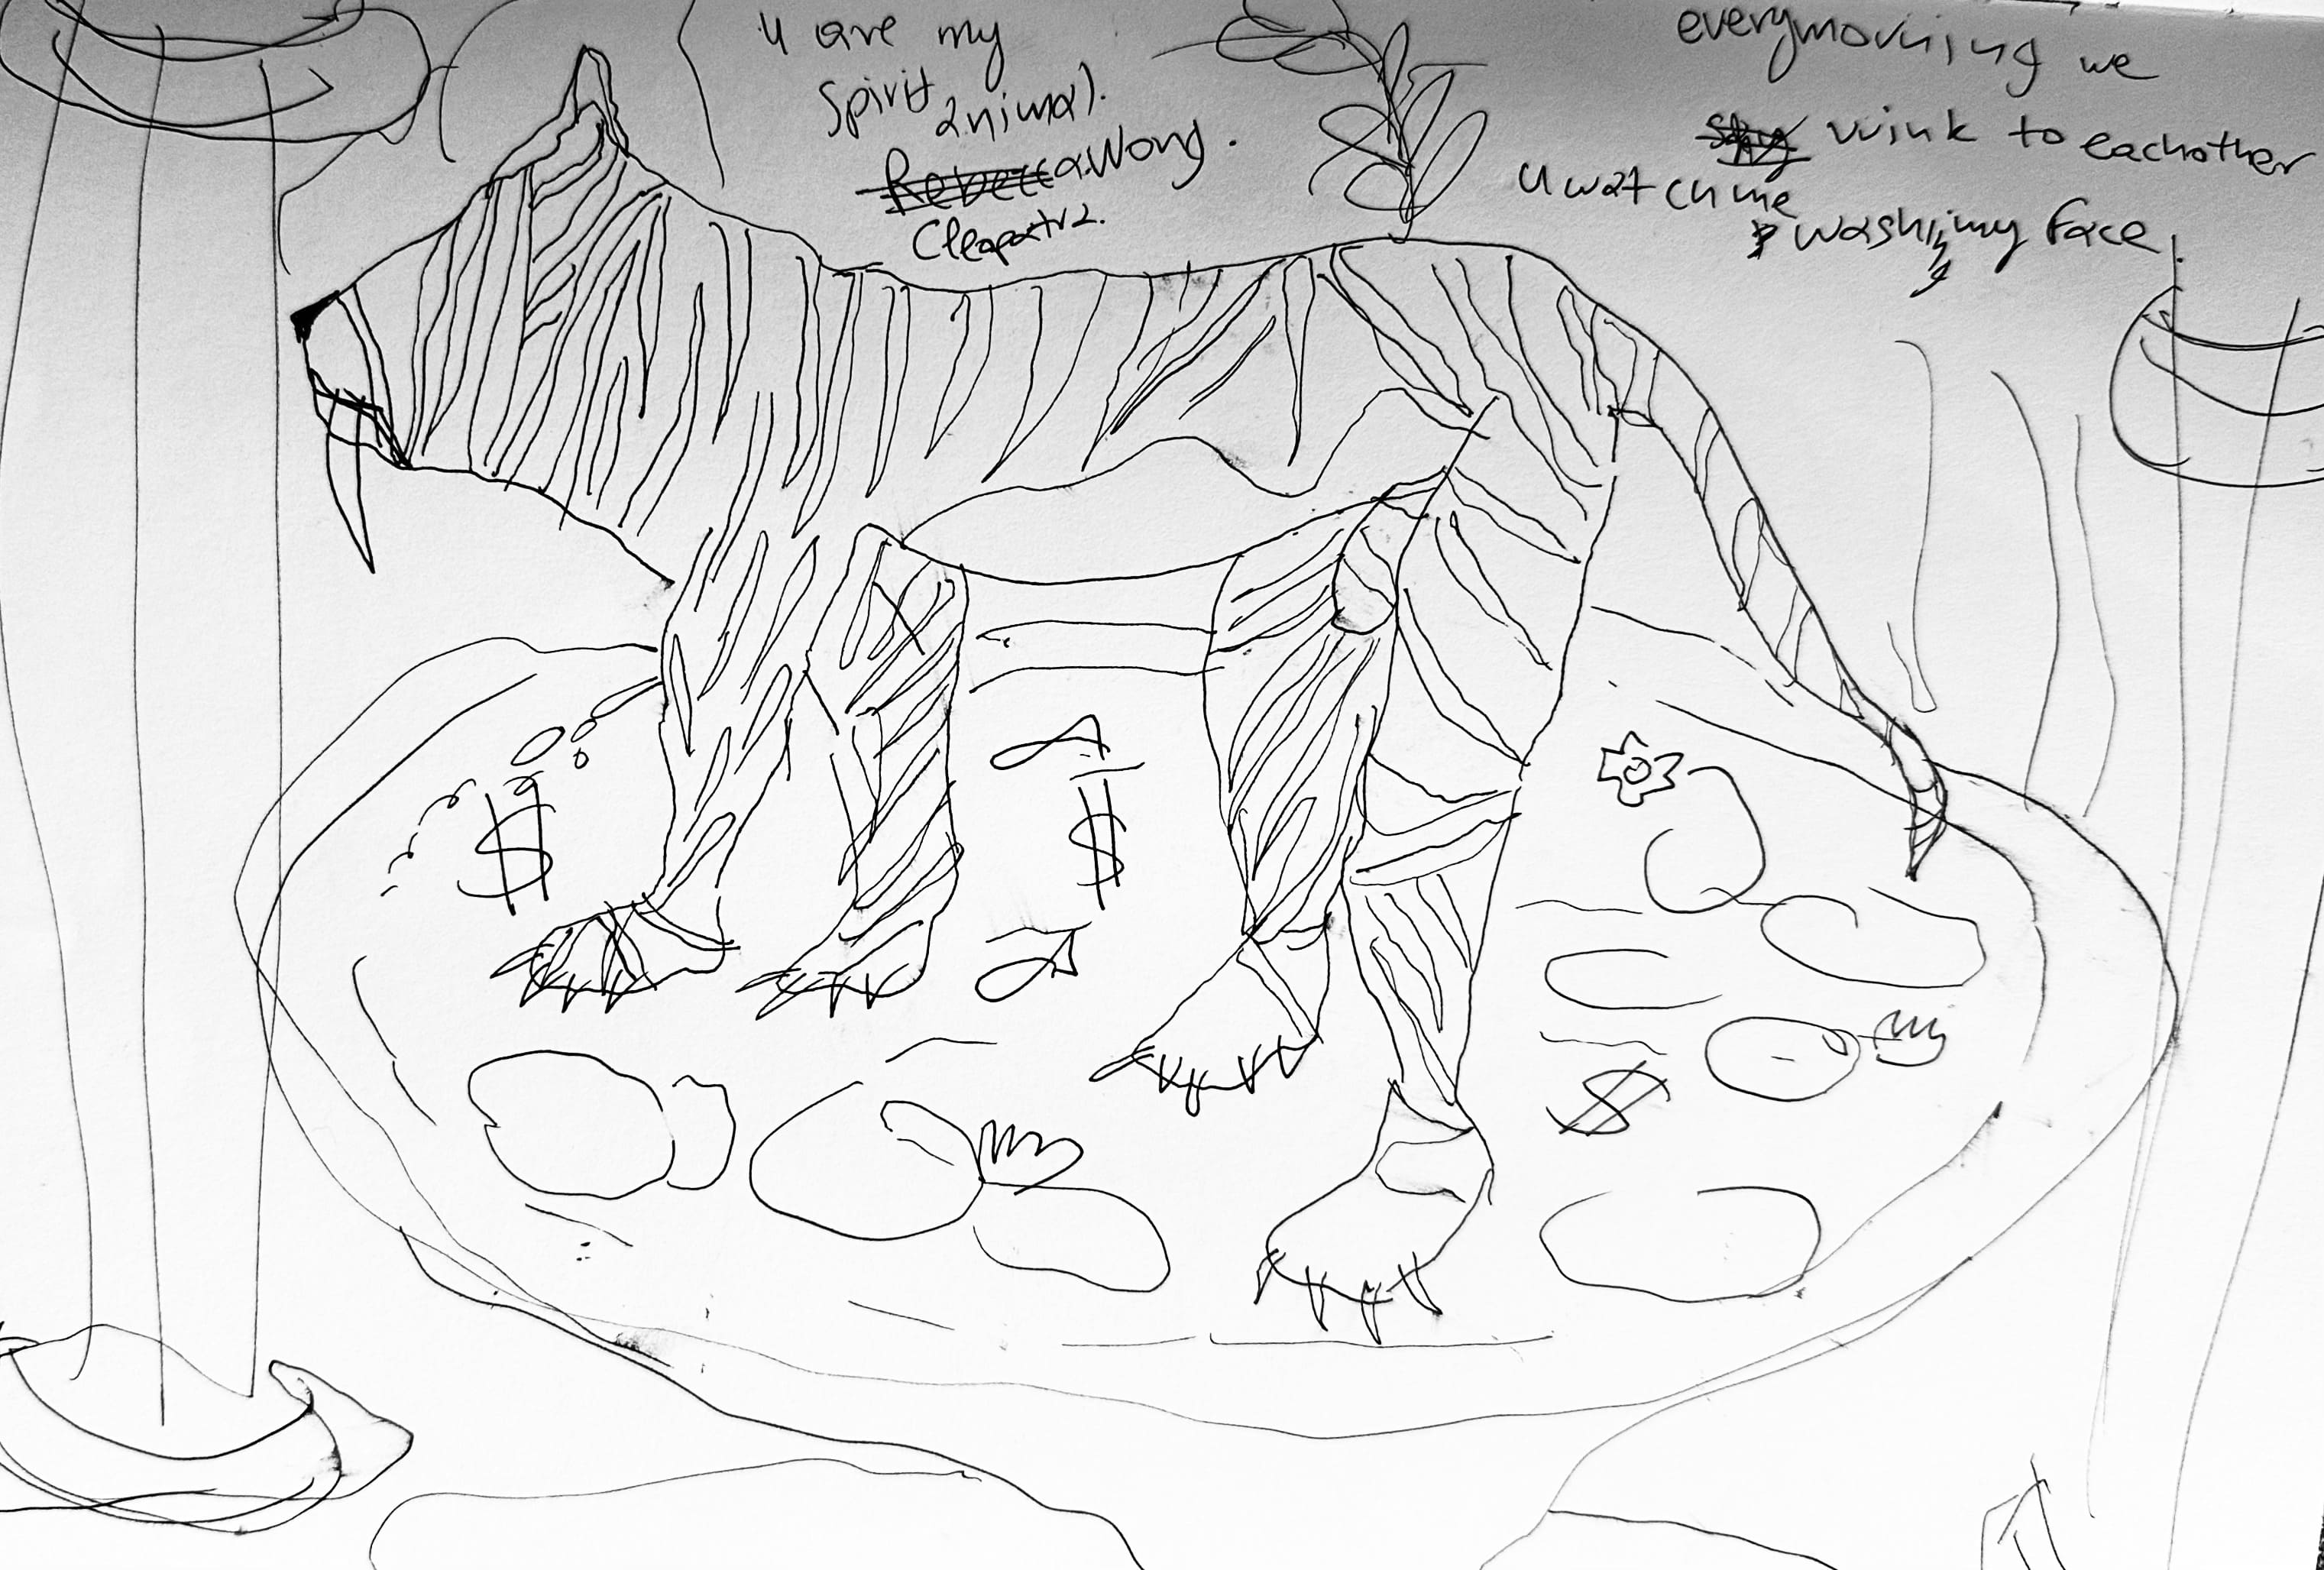 u are my
spirit
animal.
Rebecca Wong.
Cleopatra.
everymorning we
wink to eachother
u watch me
washing my face.
$
$
$